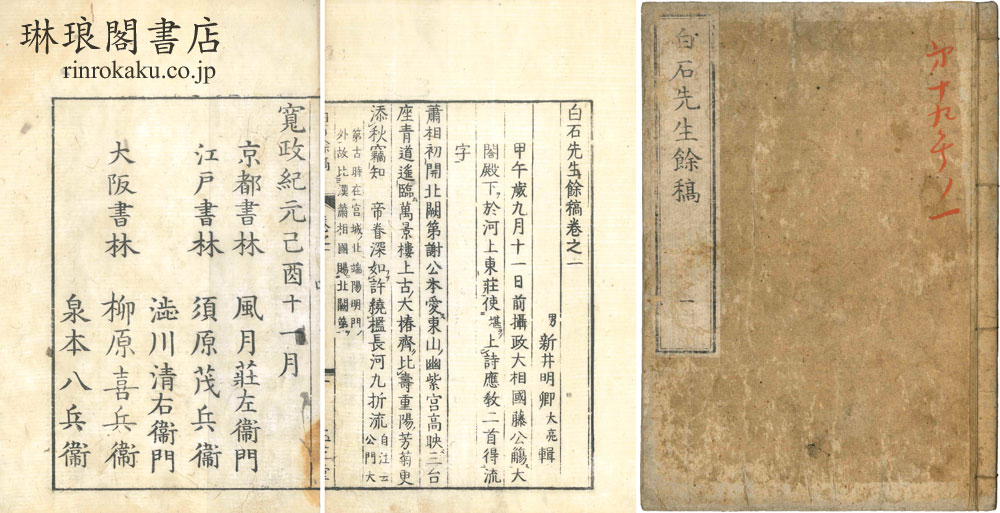 琳琅閣書店
rinrokaku.co.jp
白石先生餘稿
一
白石先生餘稿卷之一
男 新井明卿大亮 輯
甲午歲九月十一日前攝政大相國藤公觴大
閤殿下於河上東莊使堪上詩應教二首得流
字
蕭相初開北闕第謝公本愛東山幽紫宮高映三台
座青道遙臨萬景樓上古大椿齊比壽重陽芳菊更
添秋竊知 帝眷深如許繞檻長河九折流自江云公門大
第古時在宮城北端陽明門
外故比漢蕭相國賜北闕第
寬政紀元己酉十一月
京都書林 風月莊左衞門
江戶書林 須原茂兵衞
澁川清右衞門
大阪書林 柳原喜兵衞
泉本八兵衞